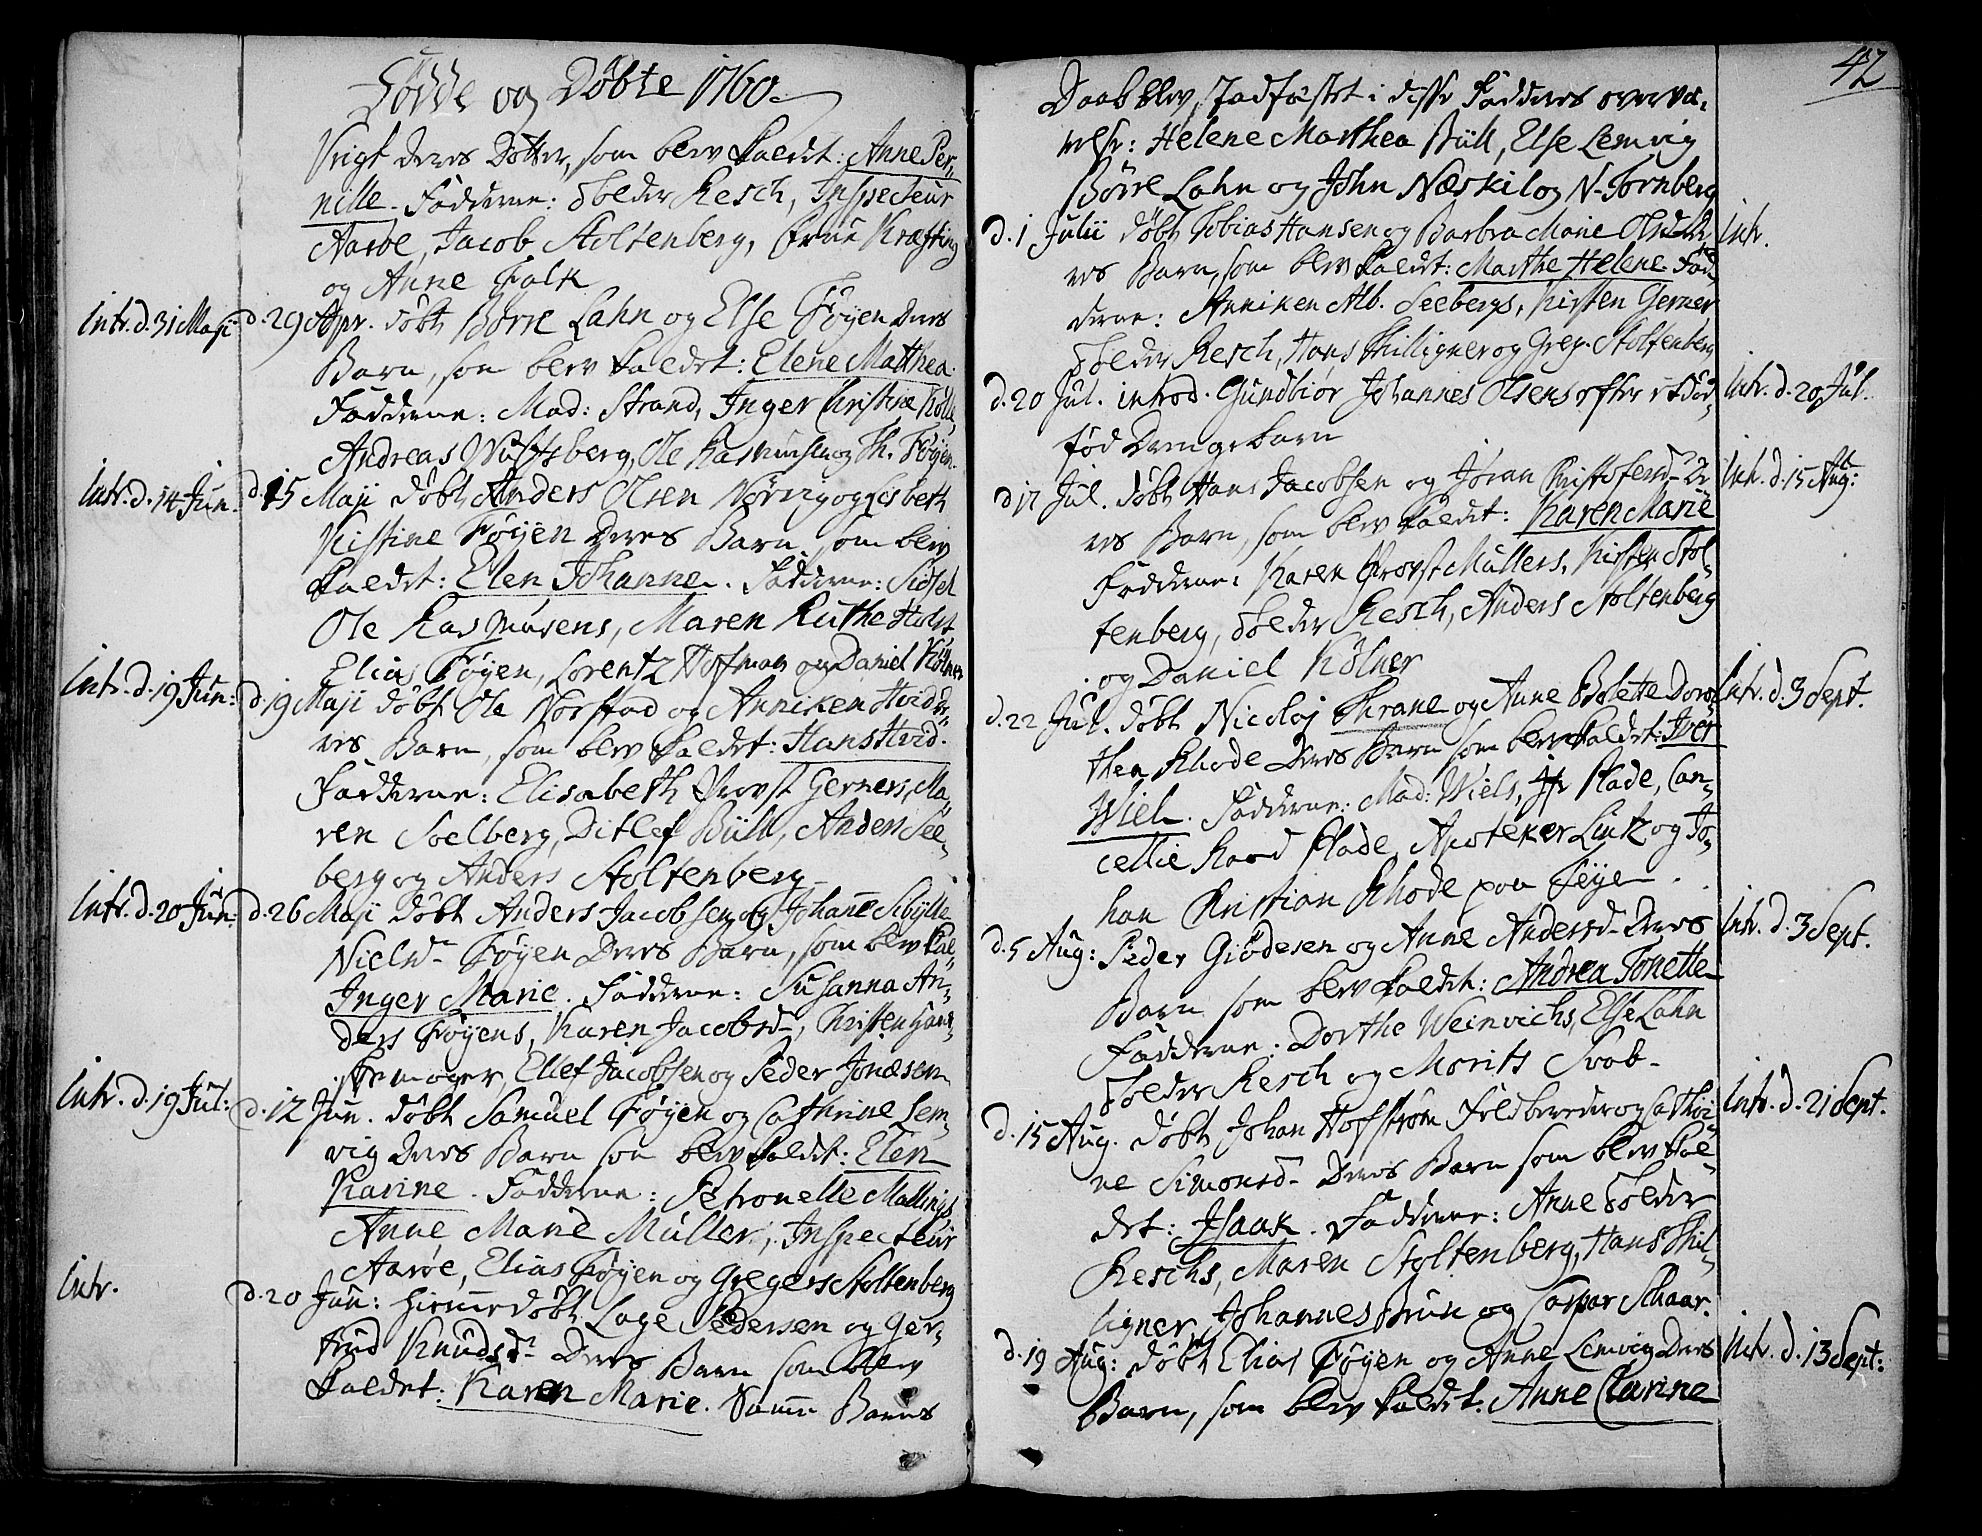 Födde og Döbte 1760.
Krigs deres Dotter, som blev kaldet: Anne Per-
nille. Fadderne: Folder Resch, Inspecteur
Aaröe, Jacob Stoltenberg, Frue Kræfting
og Anne Falk
Intr. d. 31 Maji d. 29 Apr. döbt Börre Lahn og Else Föyen deres
Barn, som blev kaldet: Elene Matthea.
Fadderne: Mad: Strand, Inger Christine
Andreas Wulfsberg, Ole Rasmusen og Th. Föyen.
Intr. d. 14 Jun. d. 15 Maji döbt Anders Olsen Nörvig og Lisbeth
Kistine Föyen Deres Barn, som blev
kaldet: Elen Johanne. Fadderne: Sidsel
Ole Rasmusens, Maren Ruthe Holst
Elias Föyen, Lorentz Hofman og Daniel Kölner
Intr. d. 19 Jun: d. 19 Maji döbt Ole Norstad og Anniken Hvid de-
res Barn, som blev kaldet: Hans Hvid.
Fadderne: Elisabeth Provst Gerners, Ma-
ren Soelberg, Ditlef Büll, Anders See-
berg og Anders Stoltenberg
Intr. d. 20 Jun. d. 26 Maji döbt Anders Jacobsen og Johanne Sibylle
Nielsd. Föyen Deres Barn, som blev kal-
Inger Marie. Fadderne: Susanna An-
ders Föyens, Karen Jacobsd., Christen
mager, Ellef Jacobsen og Peder Jonæsen
Intr. d. 19 Jul: d. 12 Jun. döbt Samuel Föyen og Cathrine Lem-
vig Deres Barn som blev kaldet: Elen
Karine. Fadderne: Petronelle Mallings
Anne Marie Müller, Inspecteur
Aaröe, Elias Föyen og Gregers Stoltenberg
Intr. d. 20 Jun: hiemmedöbt Lage Pedersen og Ger-
trud Knudsd. Deres Barn som blev
kaldet: Karen Marie. Samme Barns
42
Daab blev stadfæstet i disse Fadderes overvæ-
relse: Helene Marthea Büll, Else Lemvig
Börre Lahn og John Næskil og N. Tornberg
d. 1 Julii döbt Tobias Hansen og Barbra Marie Olsd. De- Intr.
res Barn, som blev kaldet: Marthe Helene Fad-
derne: Anniken Alb. Seebergs, Kirsten Gerner
Folder Resch, Hans Thilligner og Greg. Stoltenberg
d. 20 Jul. introd. Gundbiör Johannes Olsens efter et död- Intr. d. 20 Jul.
fød Drengebarn
d 17 Jul. döbt Hans Jacobsen og Jöran Christofersd. De- Intr. d. 15 Aug:
res Barn, som blev kaldet: Karen Marie
Fadderne: Karen Provst Müllers, Kirsten Stol-
tenberg, Folder Resch, Anders Stoltenberg
og Daniel Kölner
d. 22 Jul. döbt Nicolaj Thrane og Anne Bolette Doro- Intr. d. 3 Sept.
thea Rhode Deres Barn som blev kaldet: Iver
Wiel. Fadderne: Mad: Wiels, Jfr Plade, Can-
cellie Raad Plade, Apoteker Lintz og Jo-
han Christian Rhode paa Teye.
d. 5 Aug: Peder Giödesen og Anne Andersd. Deres Intr. d. 3 Sept.
Barn som blev kaldet: Andrea Tonette
Fadderne: Dorthe Weinvichs, Else Lahn
Folder Resch og Morits Svob.
d. 15 Aug. döbt Johan Hofström Feldbereder og Cathri- Intr. d. 21 Sept.
ne Simonsd. Deres Barn som blev kal-
det: Isaak. Fadderne: Anne Folder
Reschs, Maren Stoltenberg, Hans Thil-
ligner, Johannes Brun og Caspar Schaar.
d. 19 Aug: döbt Elias Föyen og Anne Lemvig Deres Intr. d. 13 Sept:
Barn, som blev kaldet. Anne Carine